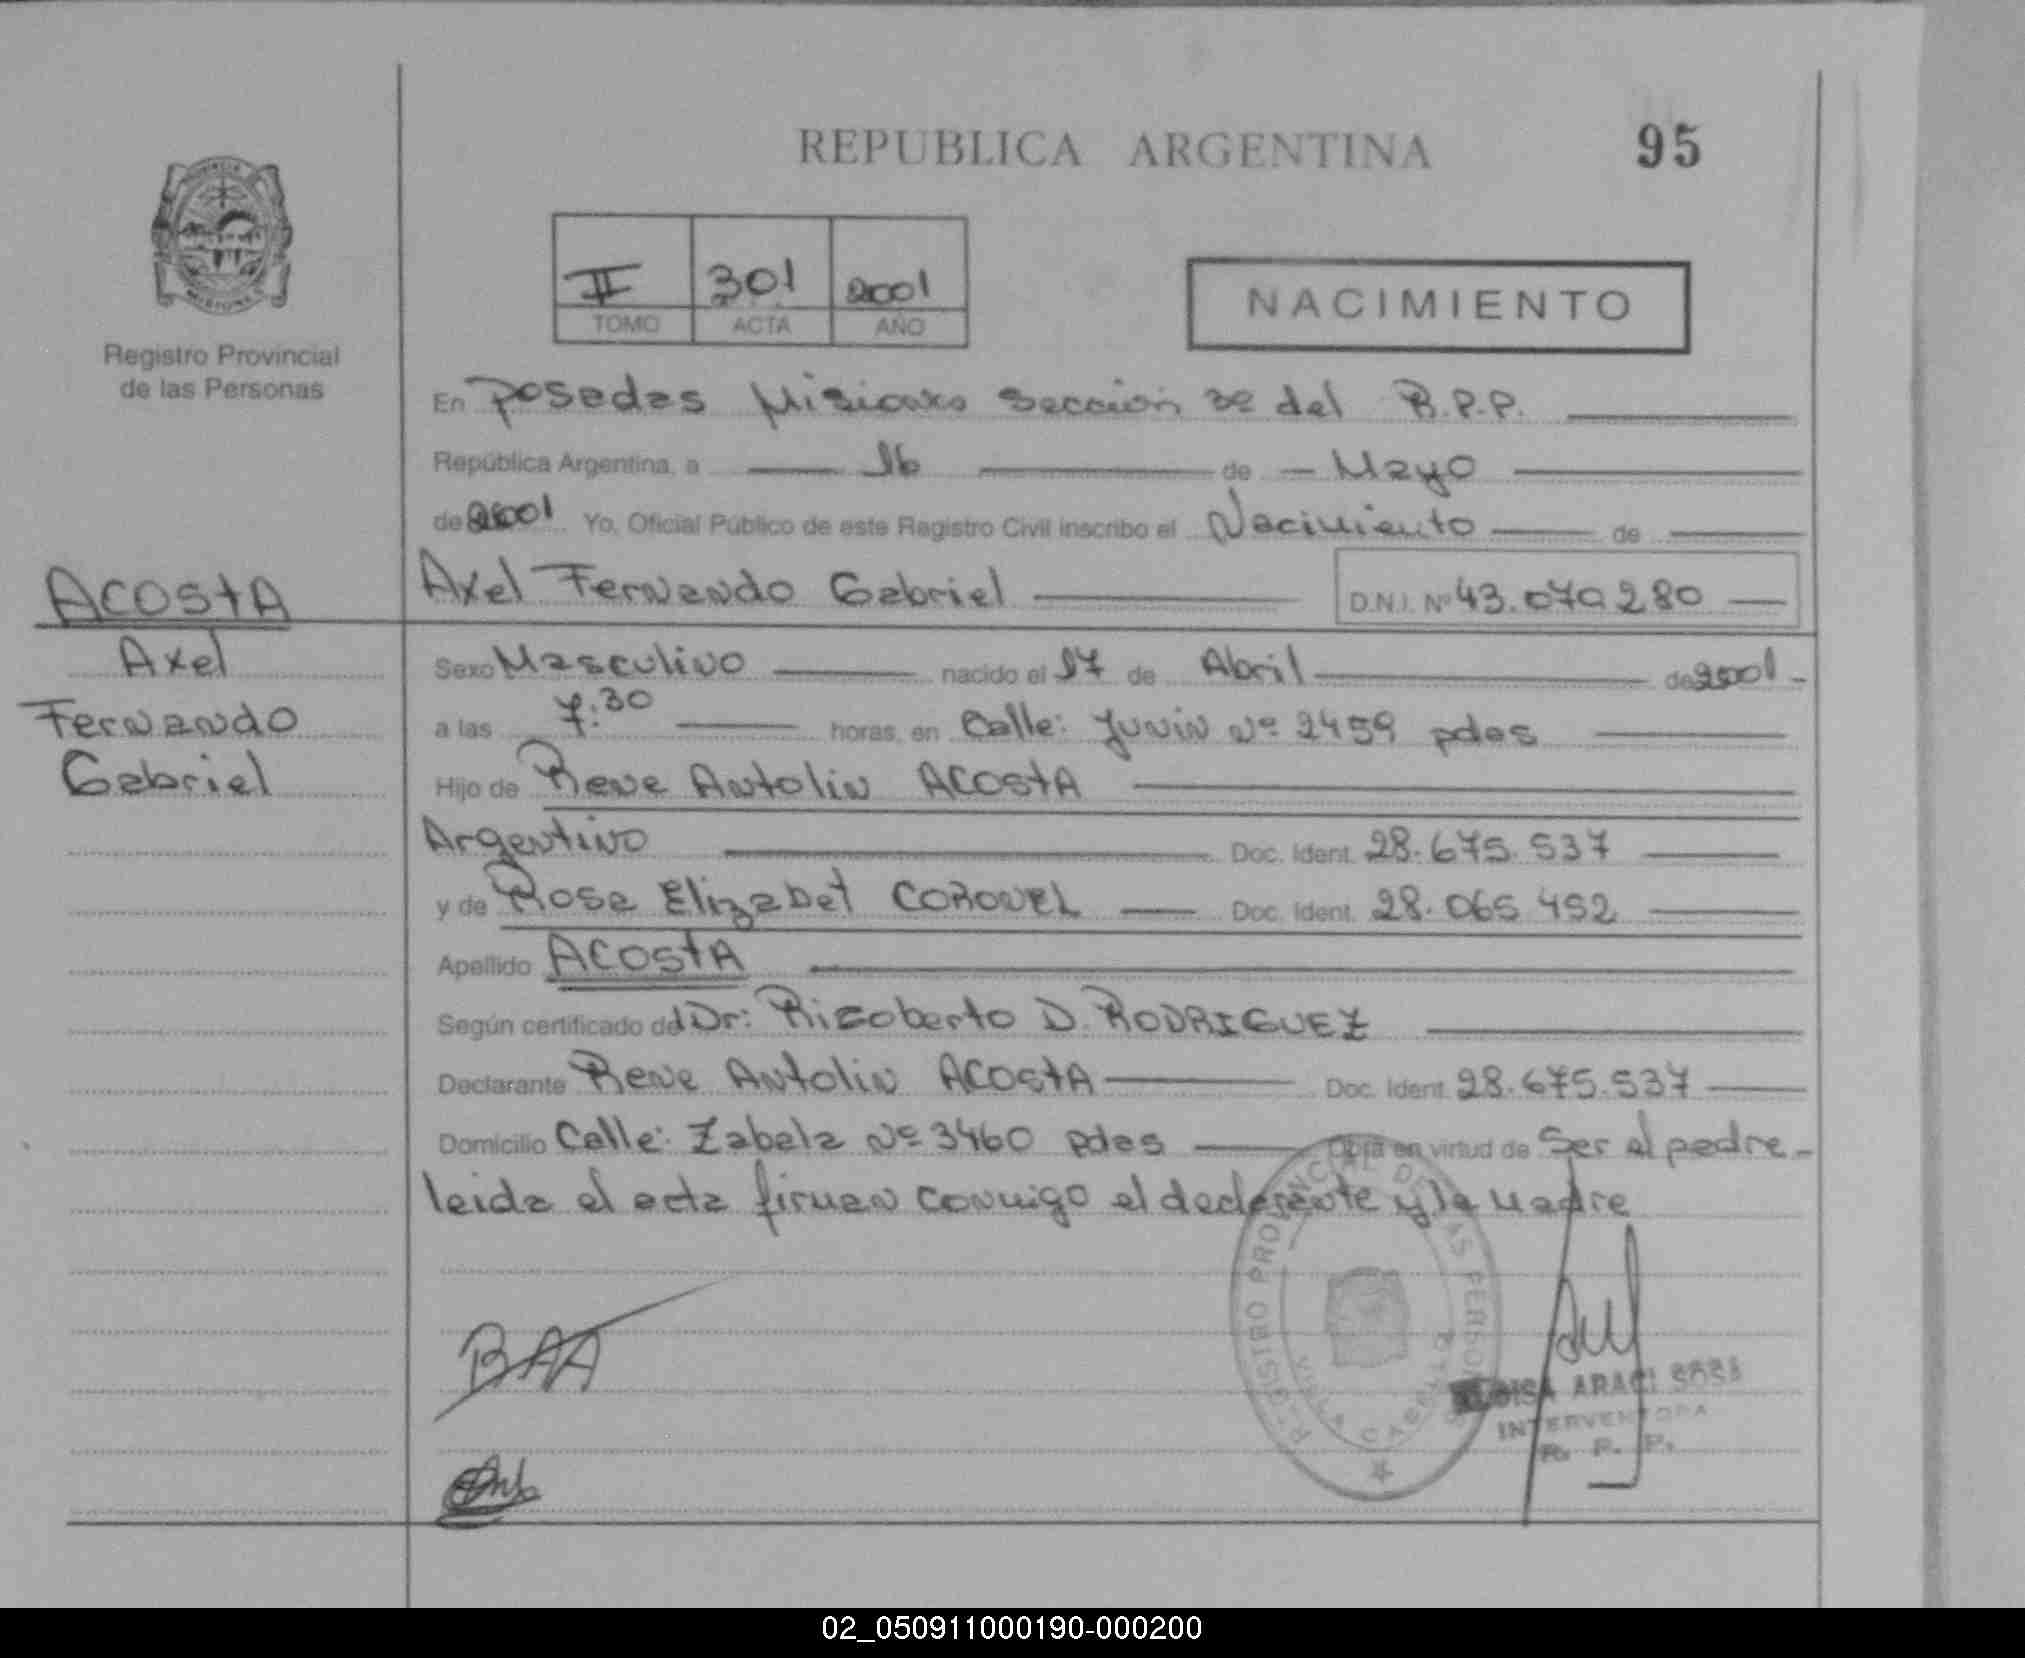 REPUBLICA ARGENTINA 95
II 301 2001
TOMO ACTA AÑO
NACIMIENTO
Registro Provincial
de las Personas
En Posadas Misiones Sección 3º del R.P.P.
República Argentina, a 16 de Mayo
de 2001 Yo, Oficial Público de este Registro Civil inscribo el Nacimiento de
Axel Fernando Gabriel D.N.I. Nº 43.070.280
ACOSTA
Axel
Fernando
Gabriel
Sexo Masculino nacido el 17 de Abril de 2001
a las 7:30 horas, en Calle: Junin Nº 2459 pdas
Hijo de Rene Antolin ACOSTA
Argentino Doc. Ident. 28.675.537
y de Rosa Elizabet CORONEL Doc. Ident. 28.065.452
Apellido ACOSTA
Según certificado del Dr: Rigoberto D. RODRIGUEZ
Declarante Rene Antolin ACOSTA Doc. Ident. 28.675.537
Domicilio Calle: Zabala Nº 3460 pdas Obra en virtud de Ser el padre-
leida el acta firman conmigo el declarante y la madre
REGISTRO PROVINCIAL DE LAS PERSONAS
ARACI SOSA
INTERVENTORA
R. P. P.
02_050911000190-000200